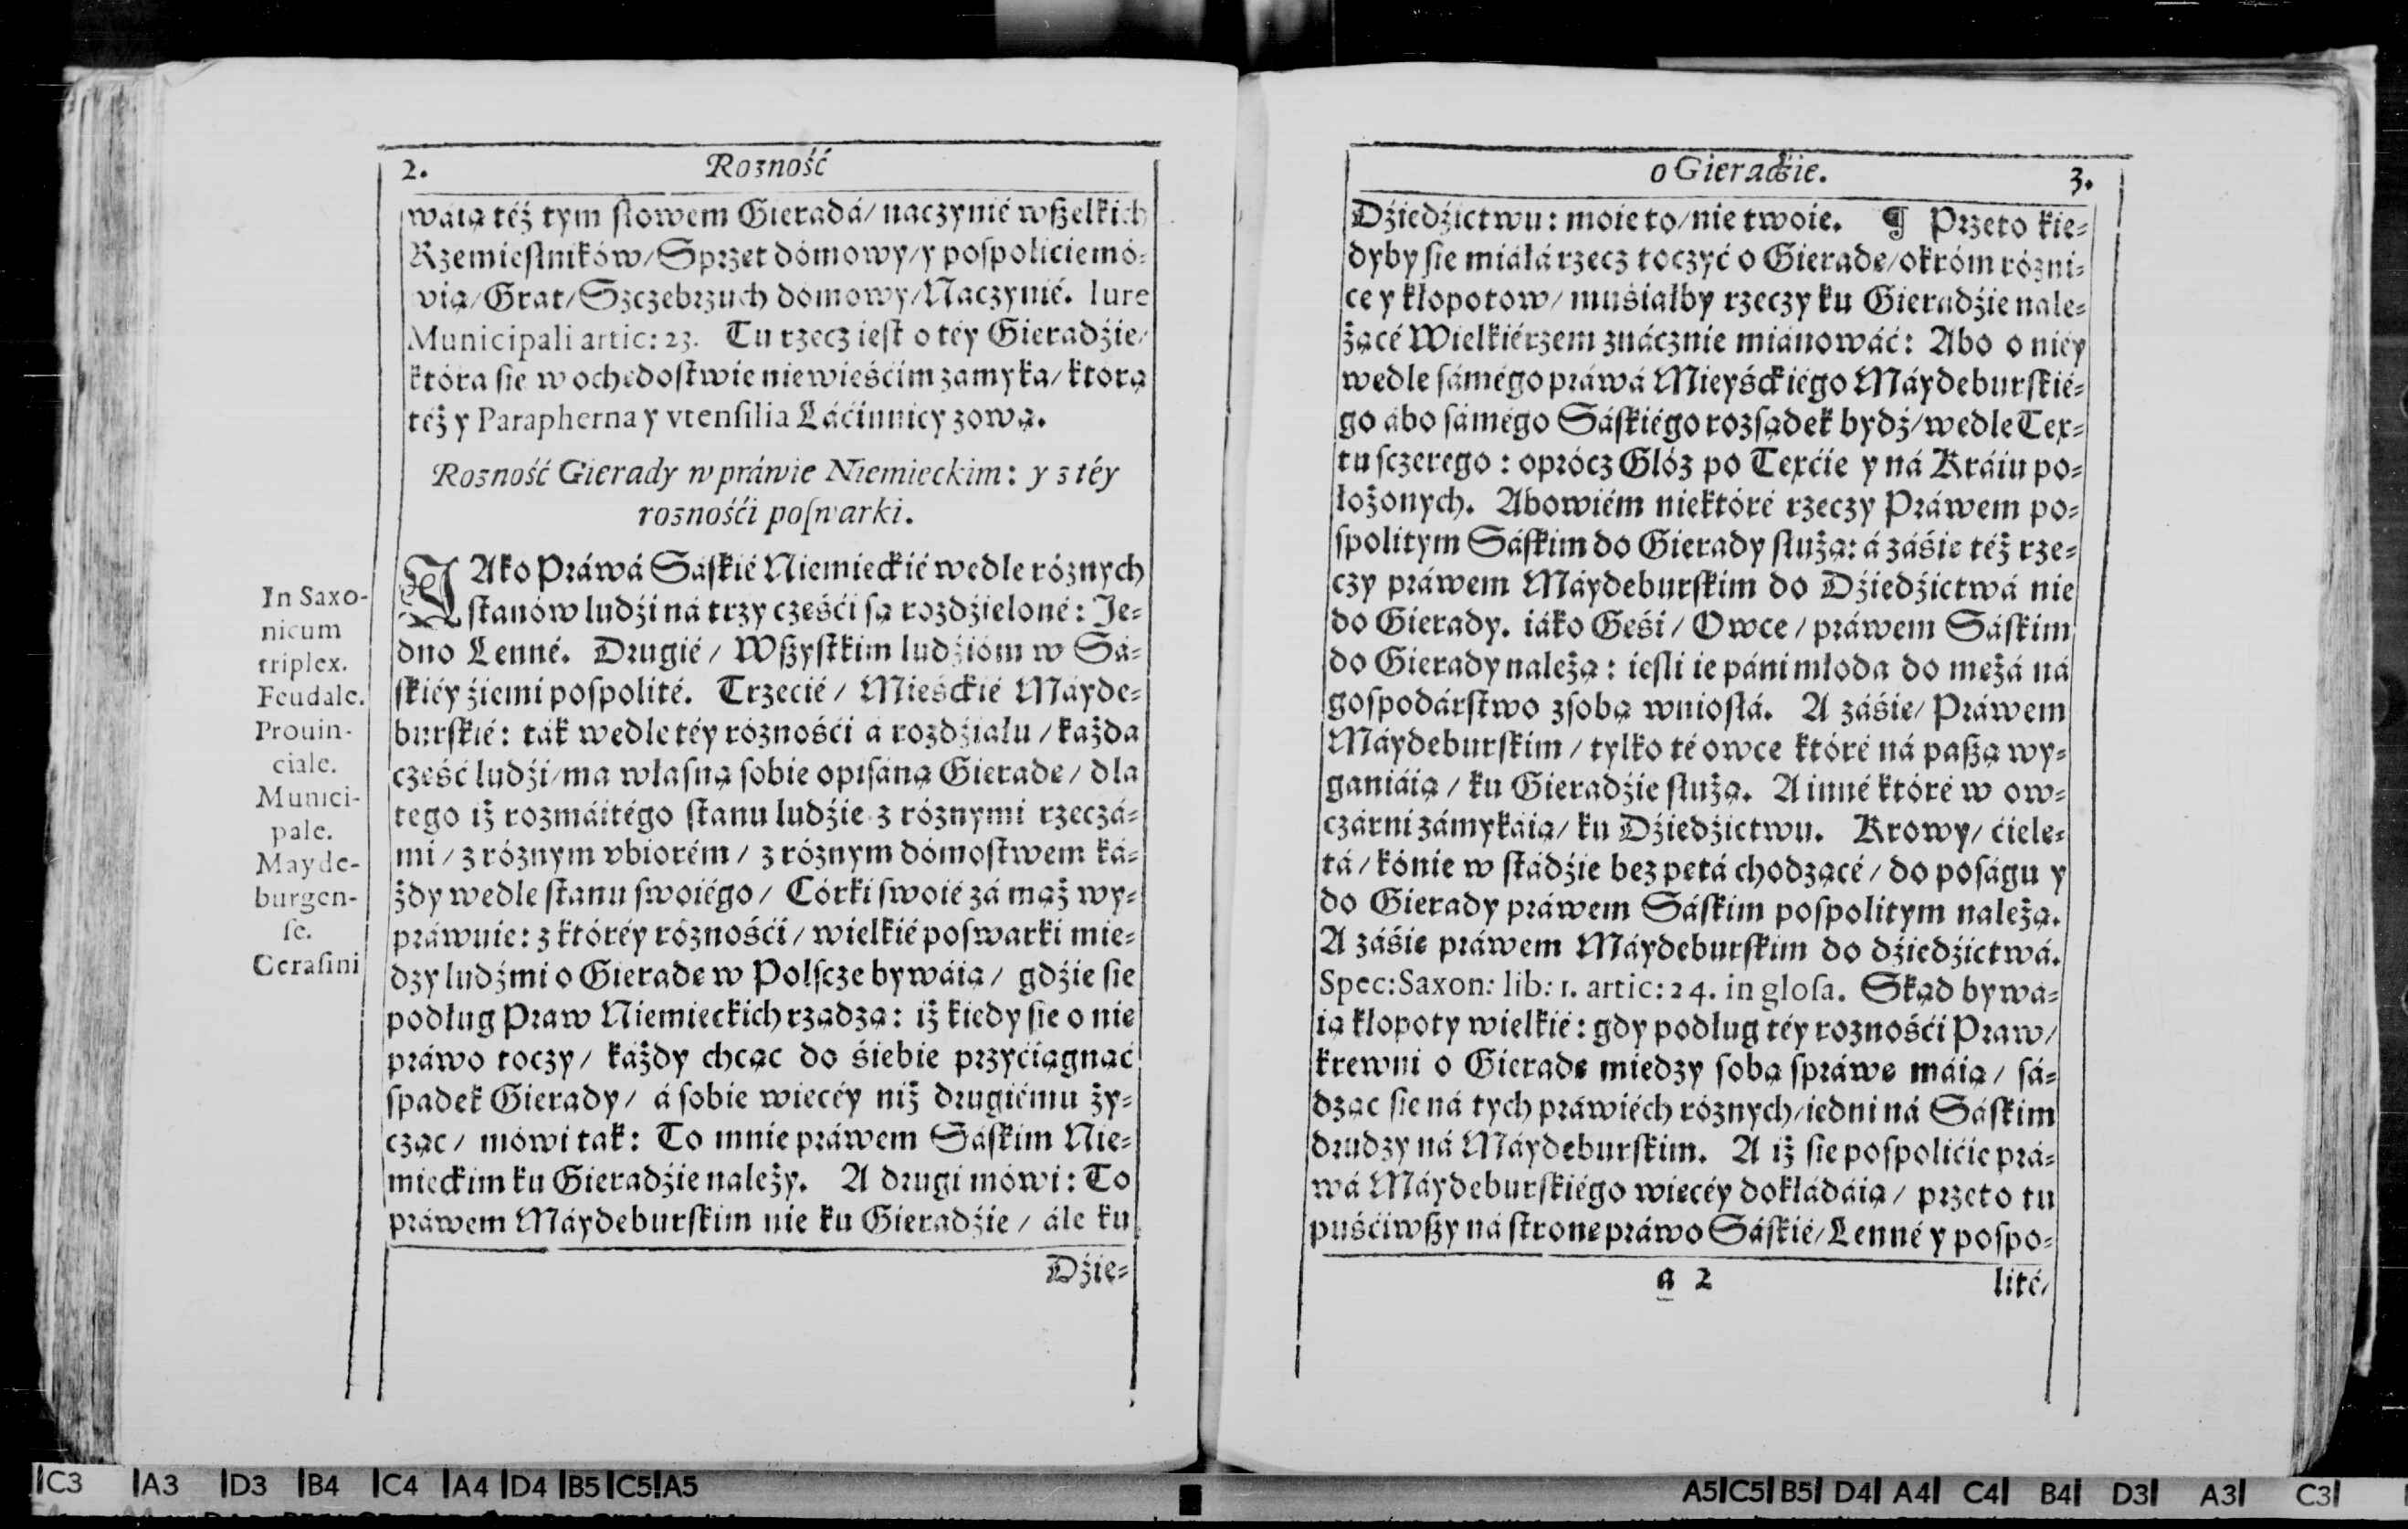 2. Rozność
waią téż tym słowem Gieradá/ naczynié wßelkich
Rzemieslników/ Sprzet dómowy/ y poſpolicie mó-
wią/ Grat/ Szczebrzuch domowy/ Naczynié. Iure
Municipali artic: 23. Tu rzecz ieſt o téy Gieradźie/
która ſie w ochedoſtwie niewieśćim zamyka/ którą
téż y Parapherna y vtenſilia Láćinnicy zową.
Rozność Gierady w práwie Niemieckim: y z téy
roznośći poſwarki.
JAko Práwá Sáſkié Niemieckié wedle róznych
ſtanów ludźi ná trzy cześći ſą rozdźieloné: Je-
dno Lenné. Drugié/ Wßyſtkim ludźióm w Sá-
ſkiéy źiemi poſpolité. Trzecié/ Mieśckié Máyde-
burſkié: ták wedle téy róznośći á rozdźiału/ każda
cześć ludźi/ ma właſną ſobie opiſáną Gierade/ dla
tego iż rozmáitégo ſtanu ludźie z róznymi rzeczá-
mi/ z róznym vbiorém/ z róznym dómoſtwem ká-
żdy wedle ſtanu ſwoiégo/ Córki ſwoié zá mąż wy-
práwuie: z któréy róznośći/ wielkié poſwarki mie-
dzy ludźmi o Gierade w Polſcze bywáią/ gdźie ſie
podług Praw Niemieckich rządzą: iż kiedy ſie o nie
práwo toczy/ káżdy chcąc do śiebie przyćiągnąć
ſpadek Gierady/ á ſobie wiecéy niż drugiému ży-
cząc/ mówi tak: To mnie práwem Sáſkim Nie-
mieckim ku Gieradźie należy. A drugi mówi: To
práwem Máydeburſkim nie ku Gieradźie/ ále ku
Dźie-
In Saxo-
nicum
triplex.
Feudale.
Prouin-
ciale.
Munici-
pale.
Mayde-
burgen-
ſe.
Ceraſini
o Gieradźie. 3.
Dźiedźictwu: moie to/ nie twoie. ¶ Przeto kie-
dyby ſie miáłá rzecz toczyć o Gierade/ okróm rózni-
ce y kłopotow/ muśiałby rzeczy ku Gieradźie nale-
żącé Wielkiérzem znácznie miánowáć: Abo o niéy
wedle ſámégo práwá Mieyśckiégo Máydeburſkié-
go ábo ſámégo Sáſkiégo rozſądek bydź/ wedle Tex-
tu ſczerego: oprócz Glóz po Texćie y ná Kráiu po-
łożonych. Abowiém niektóré rzeczy Práwem po-
ſpolitym Sáſkim do Gierady ſłużą: á záśie téż rze-
czy práwem Máydeburſkim do Dźiedźictwá nie
do Gierady. iáko Geśi/ Owce/ práwem Sáſkim
do Gierady należą: ieſli ie páni młoda do mężá ná
goſpodárſtwo zſobą wnioſłá. A záśie/ Práwem
Máydeburſkim/ tylko té owce któré ná paßą wy-
ganiáią/ ku Gieradźie ſłużą. A inné któré w ow-
czárni zámykáią/ ku Dźiedźictwu. Krowy/ ćiele-
tá/ kónie w ſtádźie bez petá chodzącé/ do poſágu y
do Gierady práwem Sáſkim poſpolitym należą.
A záśie práwem Máydeburſkim do dźiedźictwá.
Spec: Saxon: lib: 1. artic: 24. in gloſa. Skąd bywá-
ią kłopoty wielkié: gdy podług téy roznośći Praw/
krewni o Gierade miedzy ſobą ſpráwe máią/ ſá-
dząc ſie ná tych práwiéch róznych/ iedni ná Sáſkim
drudzy ná Máydeburſkim. A iż ſie poſpolićie prá-
wá Máydeburſkiégo wiecéy dokłádáią/ przeto tu
puśćiwßy ná ſtrone práwo Sáſkié/ Lenné y poſpo-
a 2 lité/
C3 A3 D3 B4 C4 A4 D4 B5 C5 A5
A5 C5 B5 D4 A4 C4 B4 D3 A3 C3